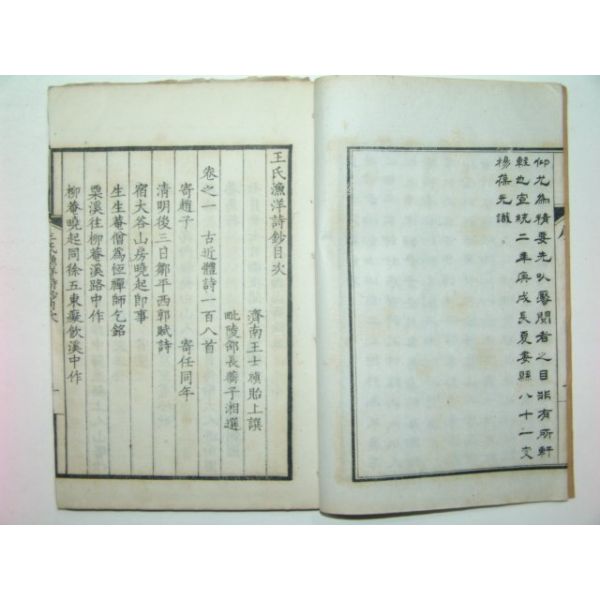 仰尤為精要先以饜閱者之目非有所軒
輊也宣統二年庚戌長夏婁縣八十一叟
楊葆光識
序
王氏漁洋詩鈔目次
濟南王士禎貽上譔
毗陵邵長蘅子湘選
卷之一 古近體詩一百八首
寄趙子 寄任同年
清明後三日鄒平西郭賦詩
宿大谷山房曉起即事
生生菴僧為恆禪師乞銘
栗溪往柳菴溪路中作
柳菴曉起同徐五東癡飲溪中作
王氏漁洋詩鈔目次
一